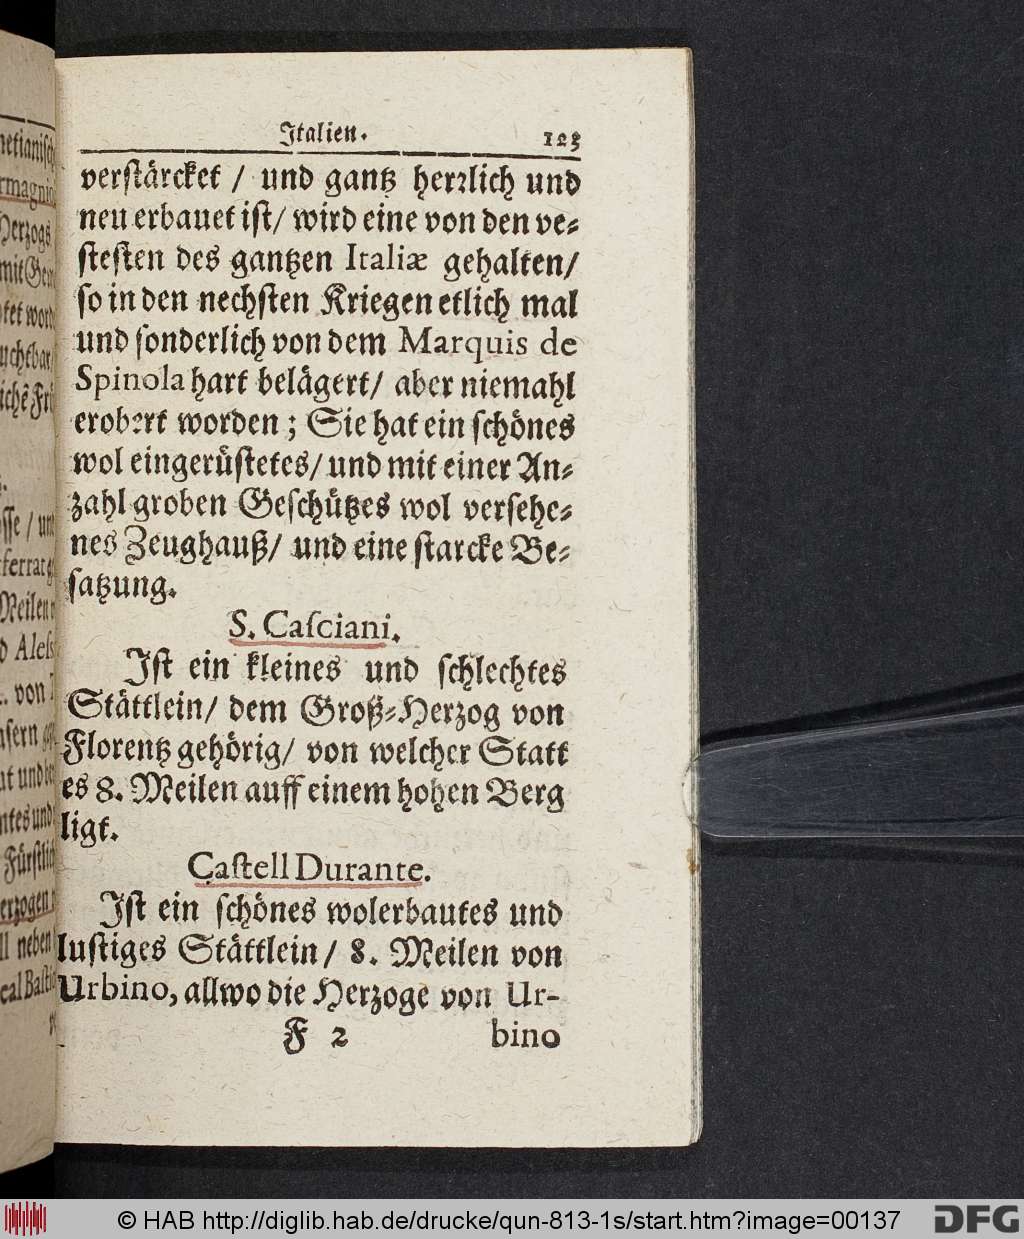 Italien. 123
verstärcket / und gantz herꝛlich und
neu erbauet ist/ wird eine von den ve⸗
stesten des gantzen Italiæ gehalten/
so in den nechsten Kriegen etlich mal
und sonderlich von dem Marquis de
Spinola hart belägert/ aber niemahl
erobert worden ; Sie hat ein schönes
wol eingerüstetes/ und mit einer An⸗
zahl groben Geschützes wol versehe⸗
nes Zeughauß/ und eine starcke Be⸗
satzung.
S. Casciani.
Ist ein kleines und schlechtes
Stättlein/ dem Groß⸗Herzog von
Florentz gehörig/ von welcher Statt
es 8. Meilen auff einem hohen Berg
ligt.
Castell Durante.
Ist ein schönes wolerbautes und
lustiges Stättlein / 8. Meilen von
Urbino, allwo die Herzoge von Ur-
F 2 bino
© HAB http://diglib.hab.de/drucke/qun-813-1s/start.htm?image=00137 DFG